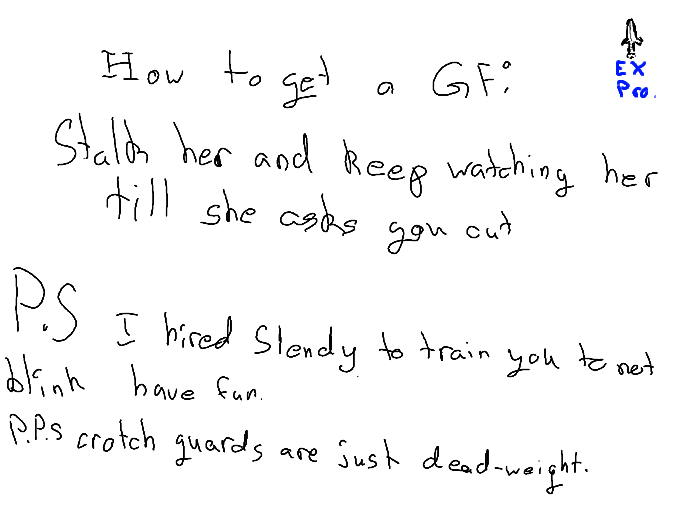 EX
Pro.
How to get a GF:
Stalk her and keep watching her
till she asks you out
P.S I hired Slendy to train you to not
blink have fun.
P.P.S crotch guards are just dead-weight.